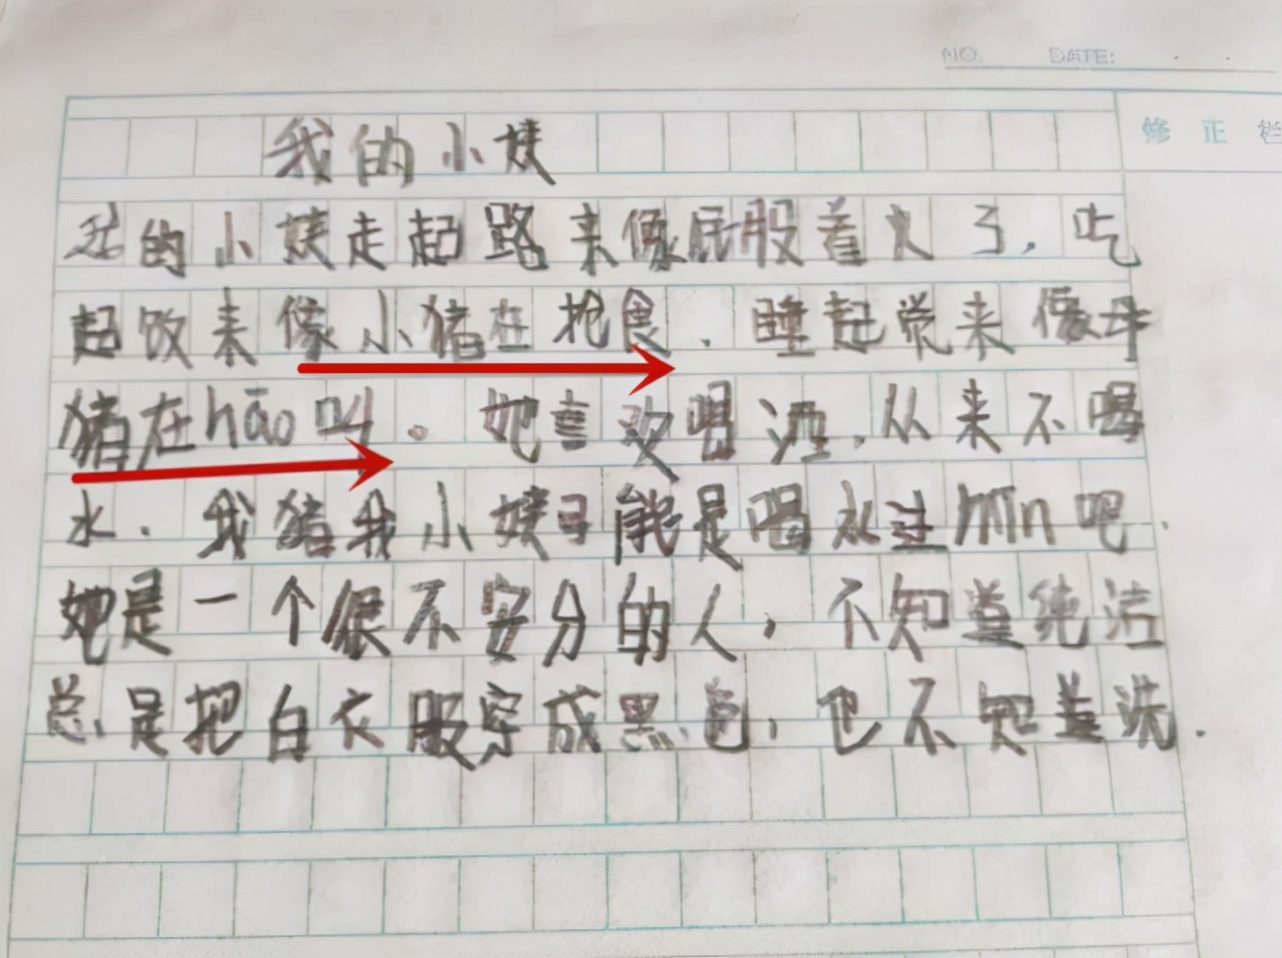 NO. DATE:
修 正 栏
我的小姨
我的小姨走起路来像屁股着火了,吃
起饭来像小猪在抢食.睡起觉来像母
猪在hāo叫。她喜欢喝酒,从来不喝
水.我猪我小姨可能是喝水过min吧.
她是一个很不安分的人,不知道纯洁
总是把白衣服穿成黑色,也不知道洗.